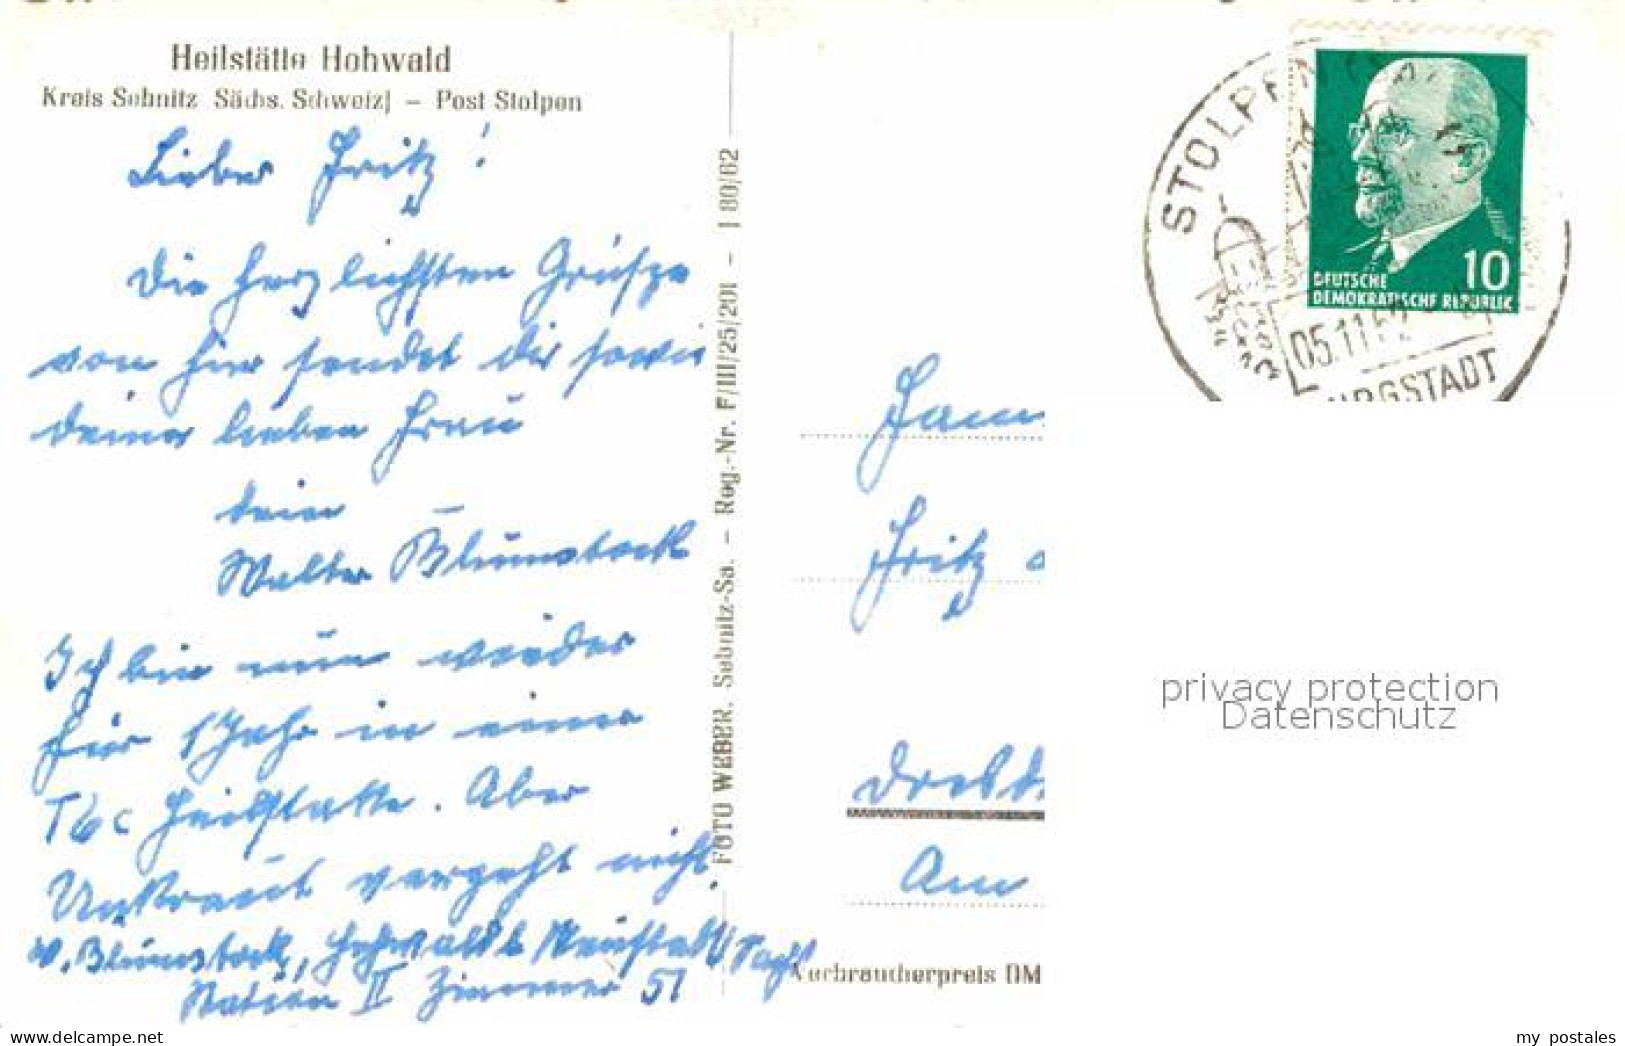 Heilstätte Hohwald
Kreis Sebnitz Sächs. Schweiz) – Post Stolpen
Lieber Fritz!
Die herzlichsten Grüsze
von hier sendet dir sowie
deiner lieben Frau
dein
Walter Blumstock
Ich bin nun wieder
für 1 Jahr in einer
Tbc Heilstatte. Aber
Unkraut vergeht nicht.
W. Blumstock, Hohwald b Neustadt/Sachs
Station II Zimmer 51
FOTO WEBER, Sebnitz-Sa. – Reg.-Nr. F/III/25/201 – I 80/62
STOLPEN
05.11.62
BURGSTADT
10
DEUTSCHE
DEMOKRATISCHE REPUBLIK
Fam
Fritz
Dresd
Am
Verbraucherpreis DM
privacy protection
Datenschutz
www.delcampe.net
my_postales